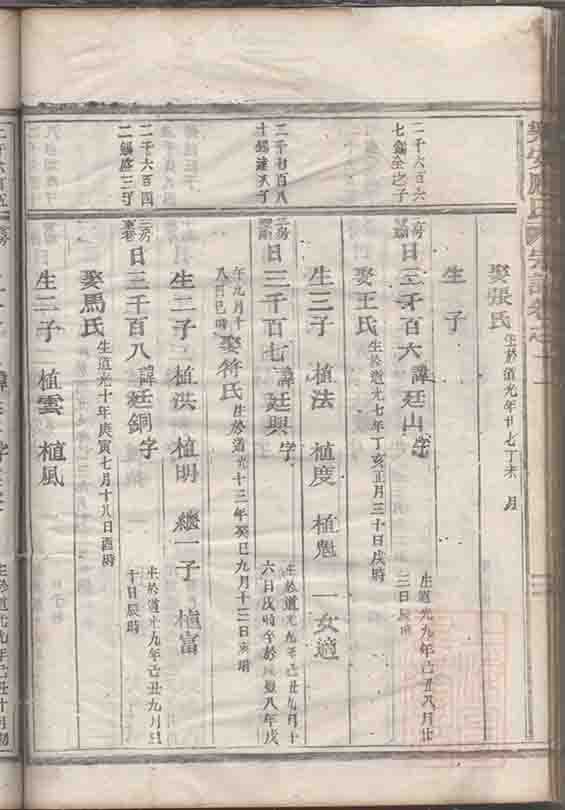 娶張氏
生於道光年廿七丁未 月
生 子
二千六百六
七錫全之子
二房
日三千百六 諱廷山 字
生道光九年己丑八月廿
三日辰時
娶王氏
生於道光七年丁亥正月三十日戌時
生三子 植法 植度 植魁 一女適
二千七百八
十錫達次子
二房
日三千百七 諱廷興 字
生於道光九年己丑九月十
六日戌時卒於咸豐八年戊
午九月十
八日巳時
娶符氏
生於道光十三年癸巳九月十二日亥時
生二子 植洪 植明 繼一子 植富
二千六百四
二錫盛三子
三房
日三千百八 諱廷銅 字
生於道光九年己丑九月
十日辰時
娶馬氏
生道光十年庚寅七月十八日酉時
生二子 植雲 植風